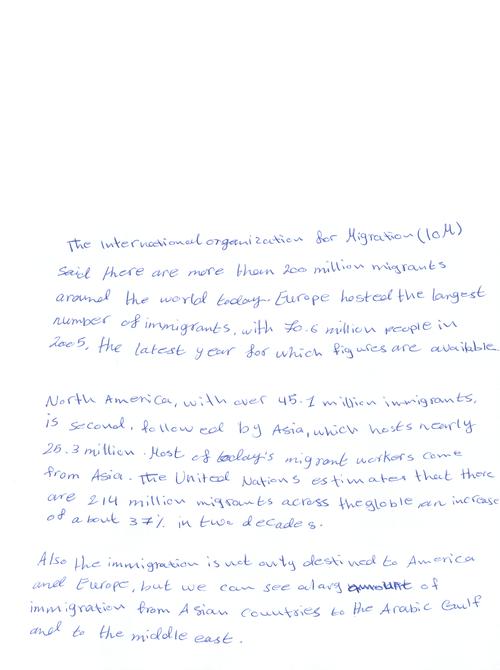 The International organization for Migration (IOM)
said there are more than 200 million migrants
around the world today. Europe hosted the largest
number of immigrants, with 70.6 million people in
2005, the latest year for which figures are available.
North America, with over 45.1 million immigrants,
is second, followed by Asia, which hosts nearly
25.3 million. Most of today's migrant workers come
from Asia. The United Nations estimates that there
are 214 million migrants across the globle, an increase
of about 37% in two decades.
Also the immigration is not only destined to America
and Europe, but we can see a larg amount of
immigration from Asian countries to the Arabic Gulf
and to the middle east.